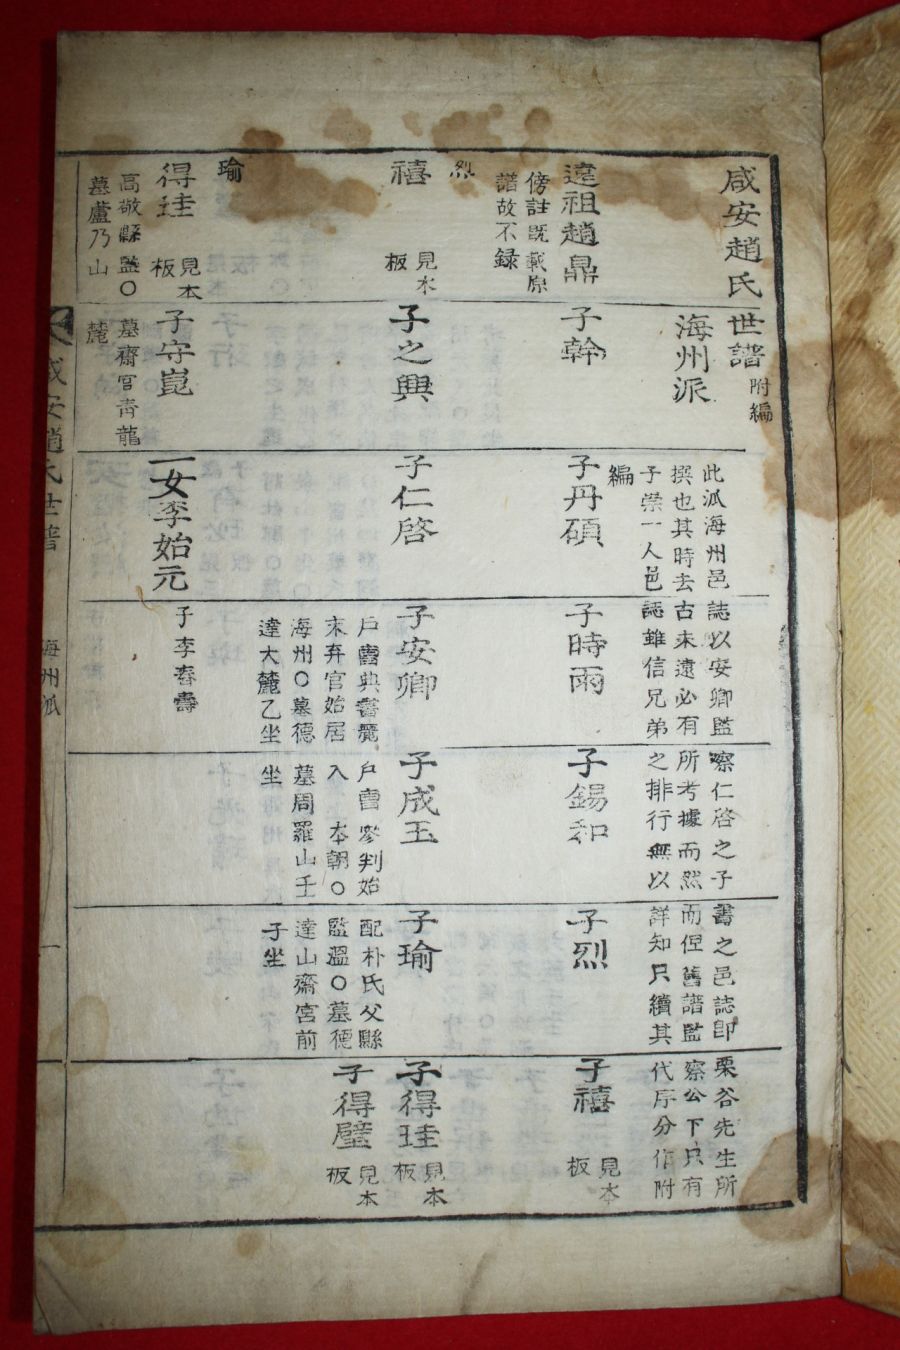 咸安趙氏世譜附編
海州派
此派海州邑誌以安卿監察仁啓之子書之邑誌卽栗谷先生所
撰也其時去古未遠必有所考據而然而但舊譜監察公下只有
子崇一人邑誌雖信兄弟之排行無以詳知只續其代序分作附
編
遠祖趙鼎
傍註旣載原
譜故不錄
子幹
子丹碩
子時雨
子錫和
子烈
子禧
見本
板
烈
禧
見本
板
子之興
子仁啓
子安卿
戶曹典書麗
末弃官始居
海州○墓德
達大麓乙坐
子成玉
戶曹參判始
入 本朝○
墓周羅山壬
坐
子瑜
配朴氏父縣
監溫○墓德
達山齋宮前
子坐
子得珪
見本
板
子得璧
見本
板
瑜
得珪
見本
板
高敞縣監○
墓蘆乃山
子守崑
墓齋宮靑龍
麓
一女李始元
子李春壽
咸安趙氏世譜
海州派
一